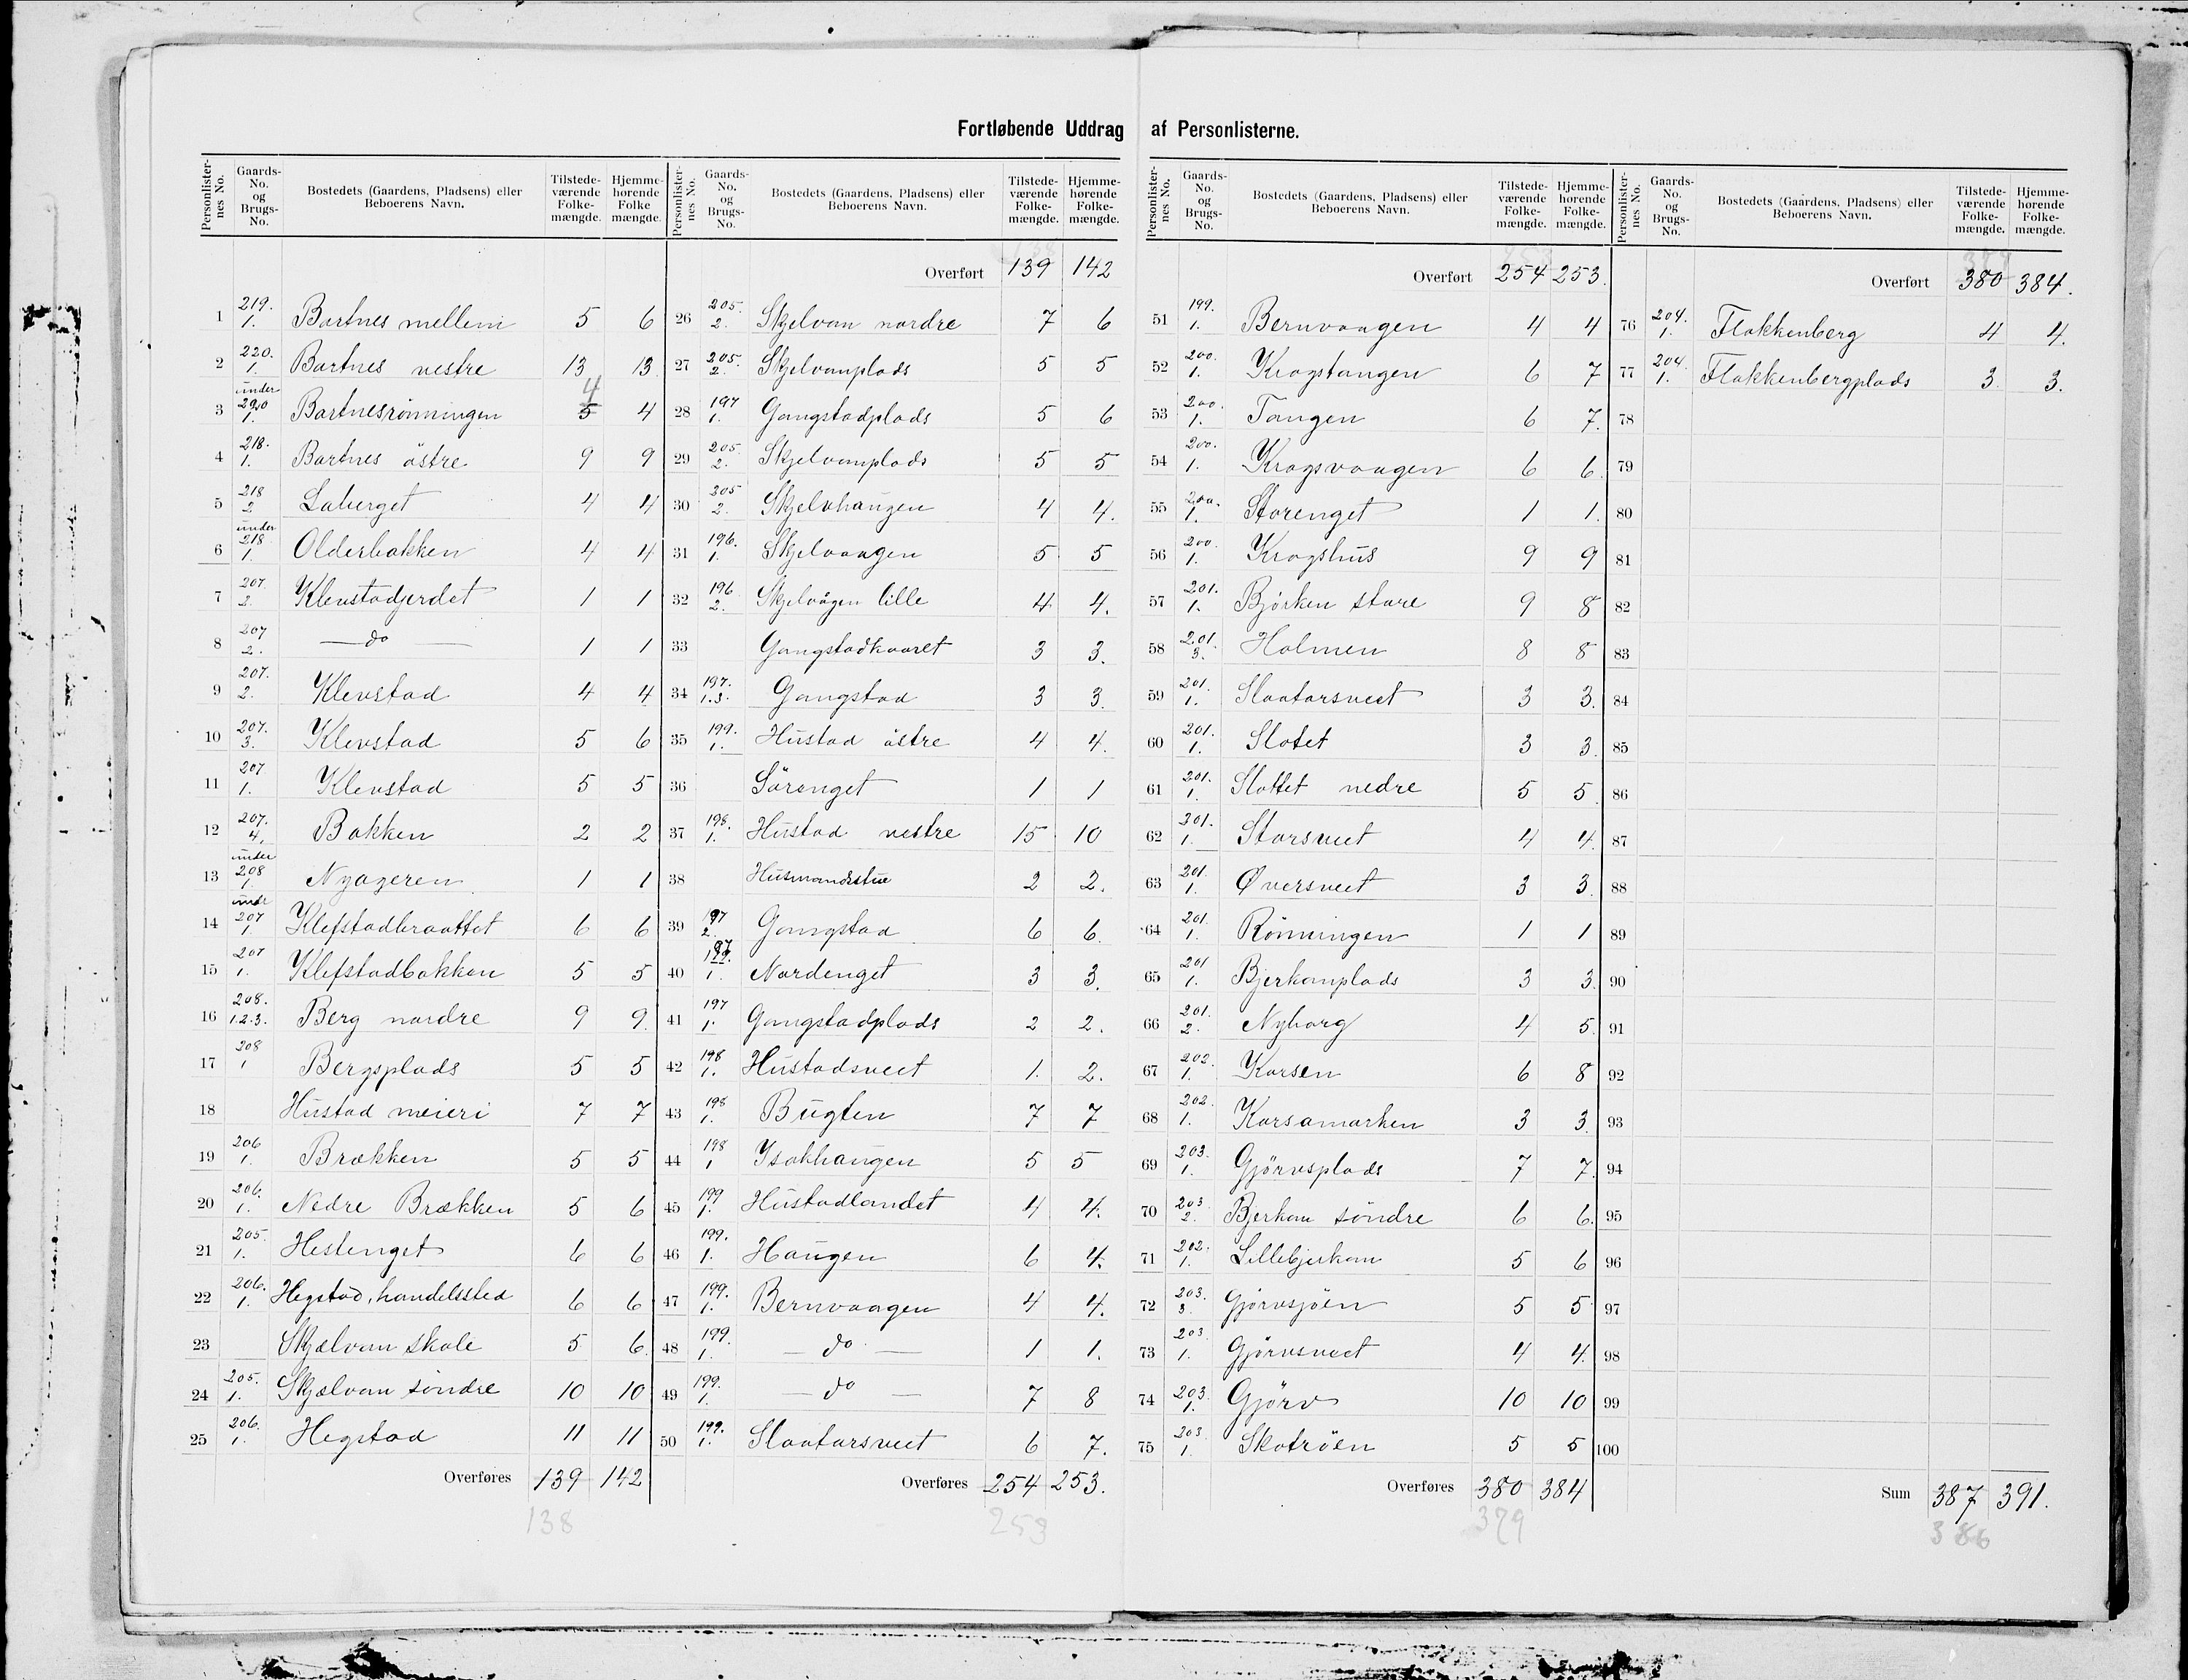 Fortløbende Uddrag af Personlisterne.
Personlister-nes No. | Gaards-No. og Brugs-No. | Bostedets (Gaardens, Pladsens) eller Beboerens Navn. | Tilstede-værende Folke-mængde. | Hjemme-hørende Folke mængde.
1 | 219. 1. | Bartnes mellem | 5 | 6
2 | 220. 1. | Bartnes vestre | 13 | 13
3 | under 220 1. | Bartnesrönningen | 5 4 | 4
4 | 218. 1. | Bartnes östre | 9 | 9
5 | 218 2 | Laberget | 4 | 4
6 | under 218 1. | Olderbakken | 4 | 4
7 | 207. 2. | Klevstadjerdet | 1 | 1
8 | 207 2. | do | 1 | 1
9 | 207. 2. | Klevstad | 4 | 4
10 | 207. 3. | Klevstad | 5 | 6
11 | 207 1. | Klevstad | 5 | 5
12 | 207. 4. | Bakken | 2 | 2
13 | under 208 1. | Nyageren | 1 | 1
14 | under 207 1. | Klefstadbraattet | 6 | 6
15 | 207 1. | Klefstadbakken | 5 | 5
16 | 208. 1.2.3. | Berg nordre | 9 | 9
17 | 208 1 | Bergsplads | 5 | 5
18 | Hustad meieri | 7 | 7
19 | 206 1. | Brækken | 5 | 5
20 | 206. 1. | Nedre Brækken | 5 | 6
21 | 205. 1. | Hestenget | 6 | 6
22 | 206. 1. | Hegstad, handelssted | 6 | 6
23 | Skjelvan skole | 5 | 6
24 | 205. 1. | Skjelvan söndre | 10 | 10
25 | 206. 1. | Hegstad | 11 | 11
Overføres 139 142
138
Personlister-nes No. | Gaards-No. og Brugs-No. | Bostedets (Gaardens, Pladsens) eller Beboerens Navn. | Tilstede-værende Folke-mængde. | Hjemme-hørende Folke-mængde.
138
Overført 139 142
26 | 205. 2. | Skjelvan nordre | 7 | 6
27 | 205. 2. | Skjelvanplads | 5 | 5
28 | 197 1. | Gangstadplads | 5 | 6
29 | 205 2. | Skjelvanplads | 5 | 5
30 | 205 2. | Skjelvhaugen | 4 | 4.
31 | 196. 1. | Skjelvaagen | 5 | 5
32 | 196 2. | Skjelvågen lille | 4 | 4.
33 | Gangstadkvaret | 3 | 3.
34 | 197. 1.3. | Gangstad | 3 | 3.
35 | 199. 1. | Hustad östre | 4 | 4.
36 | Sörenget | 1 | 1
37 | 198. 1. | Hustad vestre | 15 | 10
38 | Husmandsstue | 2 | 2.
39 | 197 2. | Gangstad | 6 | 6.
40 | 197 1. | Nordenget | 3 | 3.
41 | 197 1. | Gangstadplads | 2 | 2.
42 | 198 1. | Hustadsveet | 1. | 2.
43 | 198 1. | Bugten | 7 | 7
44 | 198 1 | Isakhaugen | 5 | 5
45 | 199 1. | Hustadlandet | 4 | 4.
46 | 199. 1. | Haugen | 6 | 4.
47 | 199. 1. | Bernvaagen | 4 | 4.
48 | 199. 1. | do | 1 | 1.
49 | 199. 1. | do | 7 | 8
50 | 199. 1. | Slaatarsveet | 6 | 7.
Overføres 254 253.
253
Personlister-nes No. | Gaards-No. og Brugs-No. | Bostedets (Gaardens, Pladsens) eller Beboerens Navn. | Tilstede-værende Folke-mængde. | Hjemme-hørende Folke-mængde.
253
Overført 254 253.
51 | 199. 1. | Bernvaagen | 4 | 4
52 | 200. 1. | Kragstangen | 6 | 7
53 | 200. 1. | Tangen | 6 | 7.
54 | 200. 1. | Kragsvaagen | 6 | 6
55 | 200. 1. | Storenget | 1 | 1.
56 | 200. 1. | Kragshus | 9 | 9
57 | 201. 1. | Björken store | 9 | 8
58 | 201. 3. | Holmen | 8 | 8
59 | 201. 1. | Slaatarsveet | 3 | 3.
60 | 201. 1. | Slotet | 3 | 3.
61 | 201. 1. | Slottet nedre | 5 | 5
62 | 201. 1. | Storsveet | 4 | 4.
63 | 201. 1. | Øversveet | 3 | 3.
64 | 201. 1. | Rönningen | 1 | 1
65 | 201 1. | Bjerkanplads | 3 | 3.
66 | 201. 2. | Nyborg | 4 | 5.
67 | 202. 1. | Korsen | 6 | 8
68 | 202. 1. | Korsamarken | 3 | 3.
69 | 203. 1. | Gjörvsplads | 7 | 7.
70 | 203. 2. | Bjerkan söndre | 6 | 6.
71 | 202. 1. | Lillebjerkan | 5 | 6
72 | 203. 3. | Gjörvsjöen | 5 | 5
73 | 203. 1. | Gjörvsveet | 4 | 4.
74 | 203. 1. | Gjörv | 10 | 10
75 | 203. 1. | Skotröen | 5 | 5
Overføres 380 384
379
Personlister-nes No. | Gaards-No. og Brugs-No. | Bostedets (Gaardens, Pladsens) eller Beboerens Navn. | Tilstede-værende Folke-mængde. | Hjemme-hørende Folke-mængde.
379
Overført 380 384.
76 | 204. 1. | Flakkenberg | 4 | 4.
77 | 204. 1. | Flakkenbergplads | 3 | 3.
78
79
80
81
82
83
84
85
86
87
88
89
90
91
92
93
94
95
96
97
98
99
100
Sum 387 391.
386